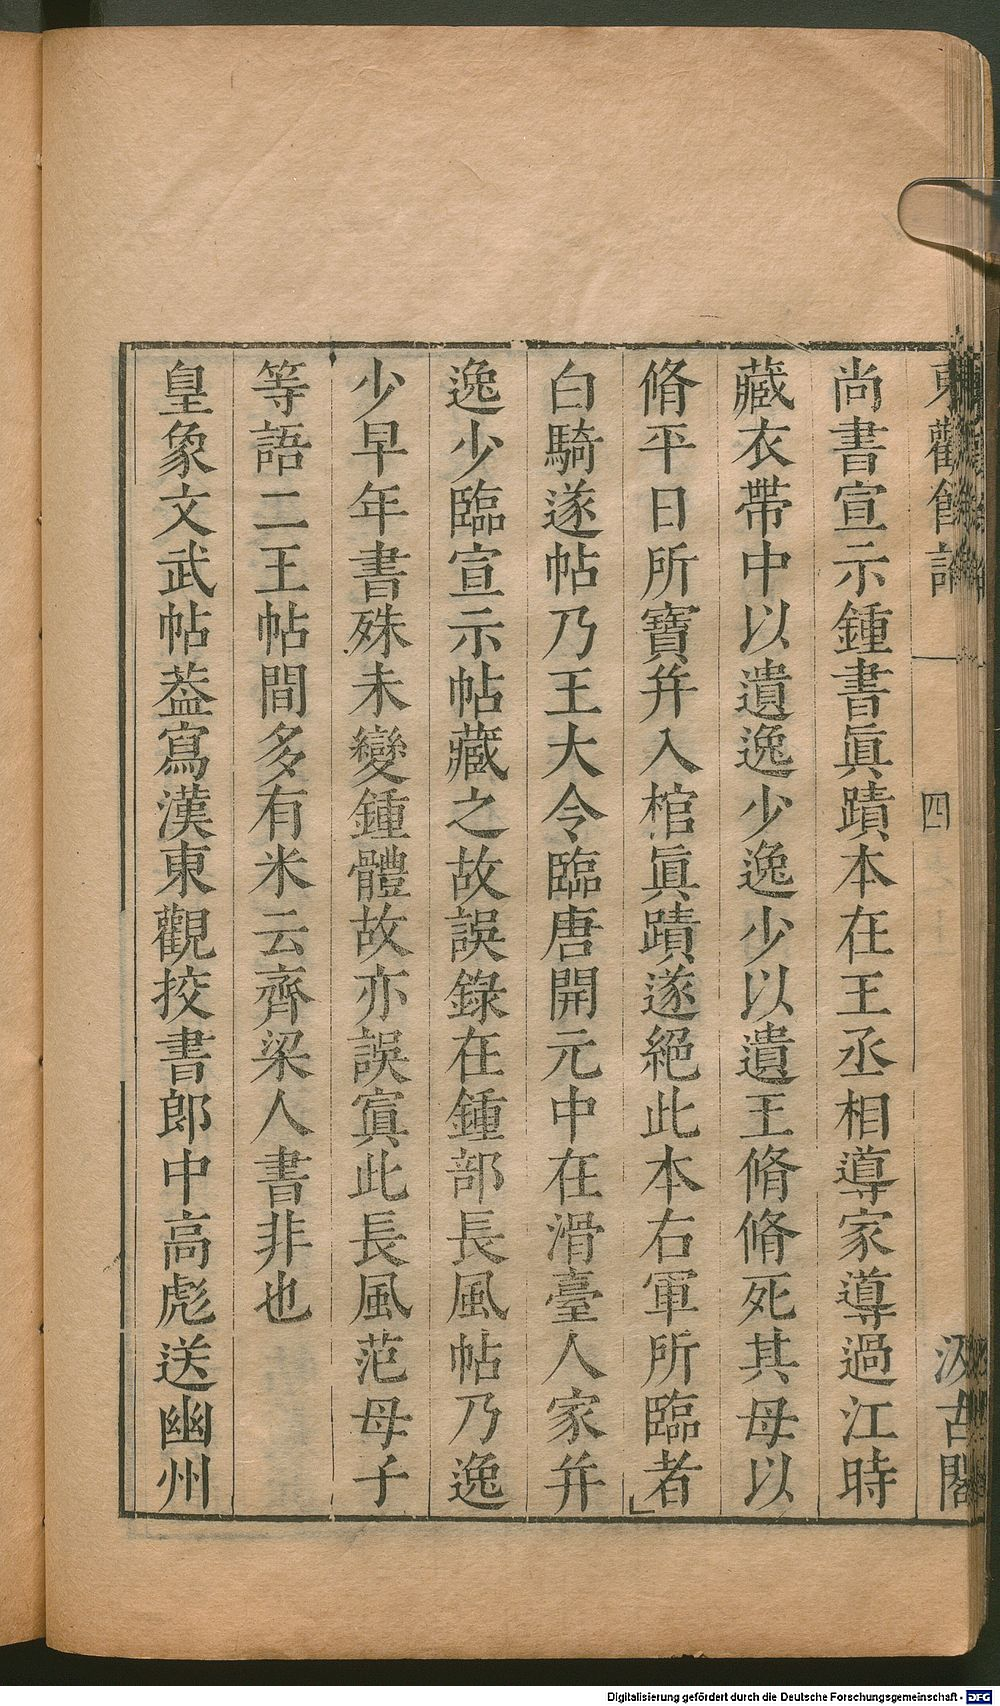 東觀餘論
四
汲古閣
尚書宣示鍾書眞蹟本在王丞相導家導過江時
藏衣帶中以遺逸少逸少以遺王脩脩死其母以
脩平日所寶并入棺眞蹟遂絕此本右軍所臨者
白騎遂帖乃王大令臨唐開元中在滑臺人家并
逸少臨宣示帖藏之故誤錄在鍾部長風帖乃逸
少早年書殊未變鍾體故亦誤寘此長風范母子
等語二王帖間多有米云齊梁人書非也
皇象文武帖葢寫漢東觀挍書郎中高彪送幽州
Digitalisierung gefördert durch die Deutsche Forschungsgemeinschaft - DFG